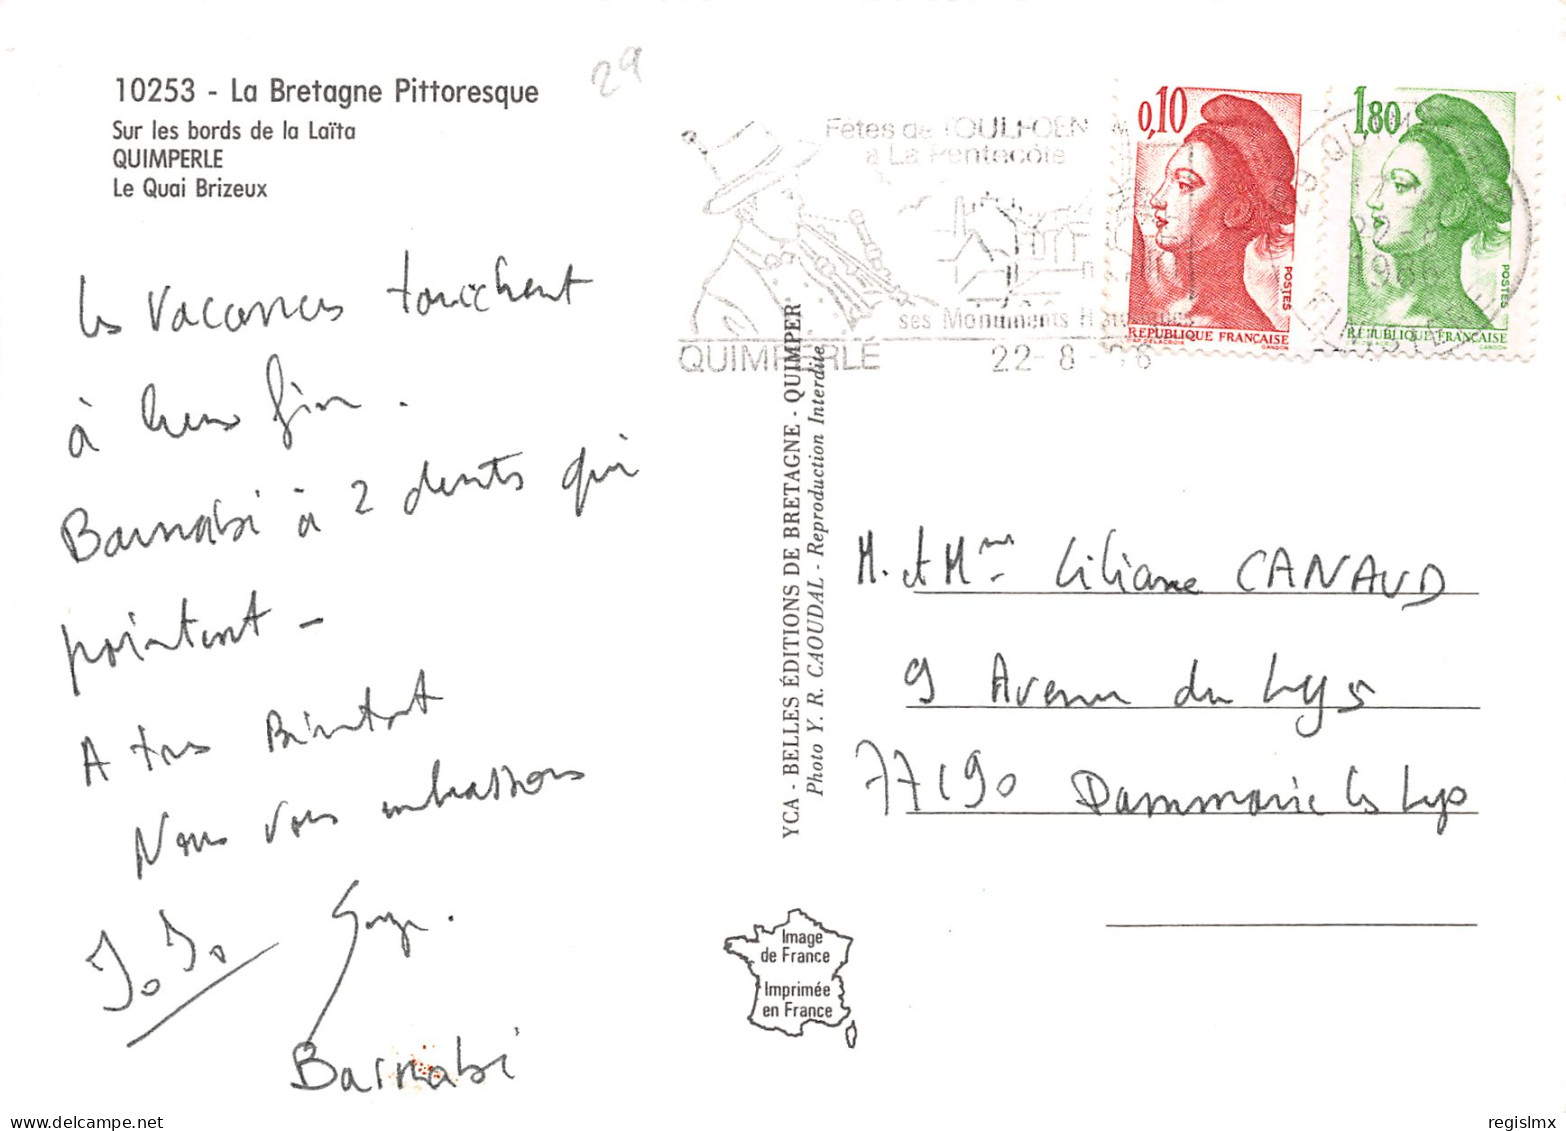 10253 - La Bretagne Pittoresque
Sur les bords de la Laïta
QUIMPERLE
Le Quai Brizeux
29
Fêtes de TOULFOEN
à La Pentecôte
ses Monuments Historiques
QUIMPERLÉ
22-8-
0,10
POSTES
REPUBLIQUE FRANÇAISE
1,80
POSTES
REPUBLIQUE FRANÇAISE
les vacances touchent
à leur fin.
Barnabi à 2 dents qui
pointent -
A tres Bientot
Nous vous embrassons
JoJo Serge.
Barnabi
YCA - BELLES ÉDITIONS DE BRETAGNE - QUIMPER
Photo Y. R. CAOUDAL - Reproduction Interdite
M. et Mme Liliane CANAUD
9 Avenue du Lys
77190 Dammarie les Lys
Image
de France
Imprimée
en France
regislmx